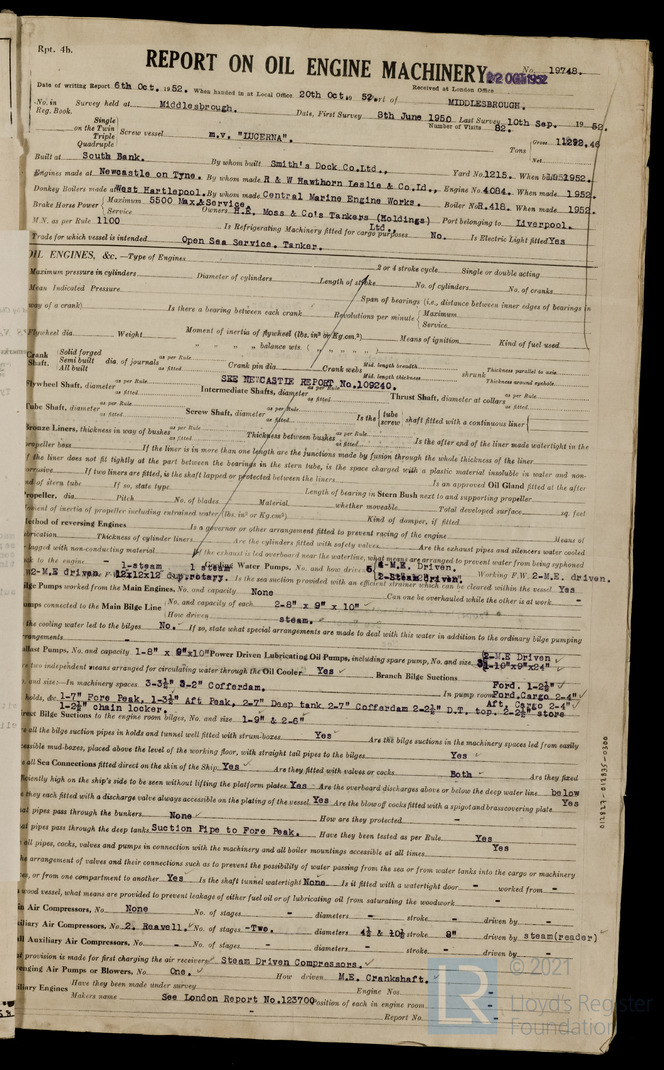 Rpt. 4b.
REPORT ON OIL ENGINE MACHINERY.
No. 19748.
22 OCT 1952
Date of writing Report 6th Oct. 1952. When handed in at Local Office 20th Oct. 1952. Port of MIDDLESBROUGH.
Received at London Office
No. in Reg. Book. Survey held at Middlesbrough. Date, First Survey 8th June 1950 Last Survey 10th Sep. 1952.
Number of Visits 82.
Single on the Twin Triple Quadruple Screw vessel m.v. "LUCERNA". Tons Gross 11292.46 Net
Built at South Bank. By whom built Smith's Dock Co.Ltd., Yard No. 1215. When built 1952.
Engines made at Newcastle on Tyne. By whom made R & W Hawthorn Leslie & Co.Ld., Engine No. 4084. When made 1952.
Donkey Boilers made at West Hartlepool. By whom made Central Marine Engine Works. Boiler No. R.418. When made 1952.
Brake Horse Power Maximum 5500 Max.& Service. Service Owners H.E. Moss & Co's Tankers (Holdings) Ltd., Port belonging to Liverpool.
M.N. as per Rule 1100 Is Refrigerating Machinery fitted for cargo purposes No. Is Electric Light fitted Yes
Trade for which vessel is intended Open Sea Service. Tanker.
OIL ENGINES, &c.—Type of Engines 2 or 4 stroke cycle Single or double acting
Maximum pressure in cylinders Diameter of cylinders Length of stroke No. of cylinders No. of cranks
Mean Indicated Pressure Span of bearings (i.e., distance between inner edges of bearings in
way of a crank) Is there a bearing between each crank Revolutions per minute Maximum Service
Flywheel dia Weight Moment of inertia of flywheel (lbs. in² or Kg.cm²) Means of ignition Kind of fuel used
" " " balance wts. ( " " " " )
Crank Shaft, Solid forged Semi built All built dia. of journals as per Rule as fitted Crank pin dia Crank webs Mid. length breadth Mid. length thickness shrunk Thickness parallel to axis Thickness around eyehole
SEE NEWCASTLE REPORT No.109240.
Flywheel Shaft, diameter as per Rule as fitted Intermediate Shafts, diameter as per Rule as fitted Thrust Shaft, diameter at collars as per Rule as fitted
Tube Shaft, diameter as per Rule as fitted Screw Shaft, diameter as per Rule as fitted Is the tube screw shaft fitted with a continuous liner
Bronze Liners, thickness in way of bushes as per Rule as fitted Thickness between bushes as per Rule as fitted Is the after end of the liner made watertight in the
propeller boss If the liner is in more than one length are the junctions made by fusion through the whole thickness of the liner
If the liner does not fit tightly at the part between the bearings in the stern tube, is the space charged with a plastic material insoluble in water and non-
corrosive If two liners are fitted, is the shaft lapped or protected between the liners Is an approved Oil Gland fitted at the after
end of stern tube If so, state type Length of bearing in Stern Bush next to and supporting propeller
Propeller, dia. Pitch No. of blades Material whether moveable Total developed surface sq. feet
Moment of inertia of propeller including entrained water (lbs. in² or Kg.cm²) Kind of damper, if fitted
Method of reversing Engines Is a governor or other arrangement fitted to prevent racing of the engine Means of
lubrication Thickness of cylinder liners Are the cylinders fitted with safety valves Are the exhaust pipes and silencers water cooled
or lagged with non-conducting material If the exhaust is led overboard near the waterline, what means are arranged to prevent water from being syphoned
back to the engine - 1-steam 1 steam Water Pumps, No. and how driven 5 M.E. Driven. 2-Steam Driven. Working F.W. 2-M.E. driven.
2-M.E driven 12x12x12 dup.rotary. Is the sea suction provided with an efficient strainer which can be cleared within the vessel Yes
Bilge Pumps worked from the Main Engines, No. and capacity None Can one be overhauled while the other is at work -
Pumps connected to the Main Bilge Line No. and capacity of each 2-8" x 9" x 10"
How driven steam.
Is the cooling water led to the bilges No. If so, state what special arrangements are made to deal with this water in addition to the ordinary bilge pumping
arrangements -
Ballast Pumps, No. and capacity 1-8" x 9"x10" Power Driven Lubricating Oil Pumps, including spare pump, No. and size 2-M.E Driven 10"x9"x24"
Are two independent means arranged for circulating water through the Oil Cooler Yes Branch Bilge Suctions
No. and size:—In machinery spaces 3-3½" 3-2" Cofferdam. In pump room Ford. 1-2½" Ford.Cargo 2-4" Aft. Cargo 2-4"
In holds, &c. 1-7" Fore Peak, 1-3½" Aft Peak, 2-7" Deep tank 2-7" Cofferdam 2-2½" D.T. top. 2-2½" store
1-2½" chain locker.
Direct Bilge Suctions to the engine room bilges, No. and size 1-9" & 2-6"
Are all the bilge suction pipes in holds and tunnel well fitted with strum-boxes Yes Are the bilge suctions in the machinery spaces led from easily
accessible mud-boxes, placed above the level of the working floor, with straight tail pipes to the bilges Yes
Are all Sea Connections fitted direct on the skin of the Ship Yes Are they fitted with valves or cocks Both Are they fixed
sufficiently high on the ship's side to be seen without lifting the platform plates Yes Are the overboard discharges above or below the deep water line below
Are they each fitted with a discharge valve always accessible on the plating of the vessel Yes Are the blow off cocks fitted with a spigot and brass covering plate Yes
What pipes pass through the bunkers None How are they protected -
What pipes pass through the deep tanks Suction Pipe to Fore Peak. Have they been tested as per Rule Yes
Are all pipes, cocks, valves and pumps in connection with the machinery and all boiler mountings accessible at all times Yes
Is the arrangement of valves and their connections such as to prevent the possibility of water passing from the sea or from water tanks into the cargo or machinery
spaces, or from one compartment to another Yes Is the shaft tunnel watertight None Is it fitted with a watertight door - worked from -
If a wood vessel, what means are provided to prevent leakage of either fuel oil or of lubricating oil from saturating the woodwork -
Main Air Compressors, No. None No. of stages - diameters - stroke - driven by -
Auxiliary Air Compressors, No. 2. Reavell. No. of stages -Two. diameters 4½ & 10½ stroke 8" driven by steam(reader)
Small Auxiliary Air Compressors, No. - No. of stages - diameters - stroke - driven by -
What provision is made for first charging the air receivers Steam Driven Compressors.
Scavenging Air Pumps or Blowers, No. One. How driven M.E. Crankshaft.
Auxiliary Engines Have they been made under survey Engine Nos. -
Makers name See London Report No.123700 Position of each in engine room
- Report No.
012827-012835-0300
© 2021
LR
Lloyd's Register
Foundation